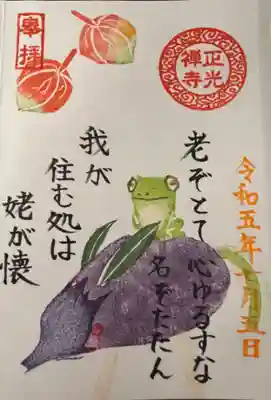 奉拝
正光
禅寺
令和五年七月五日
老ぞとて 心ゆるすな
名ぞたたん
我が
住む処は
姥が懐